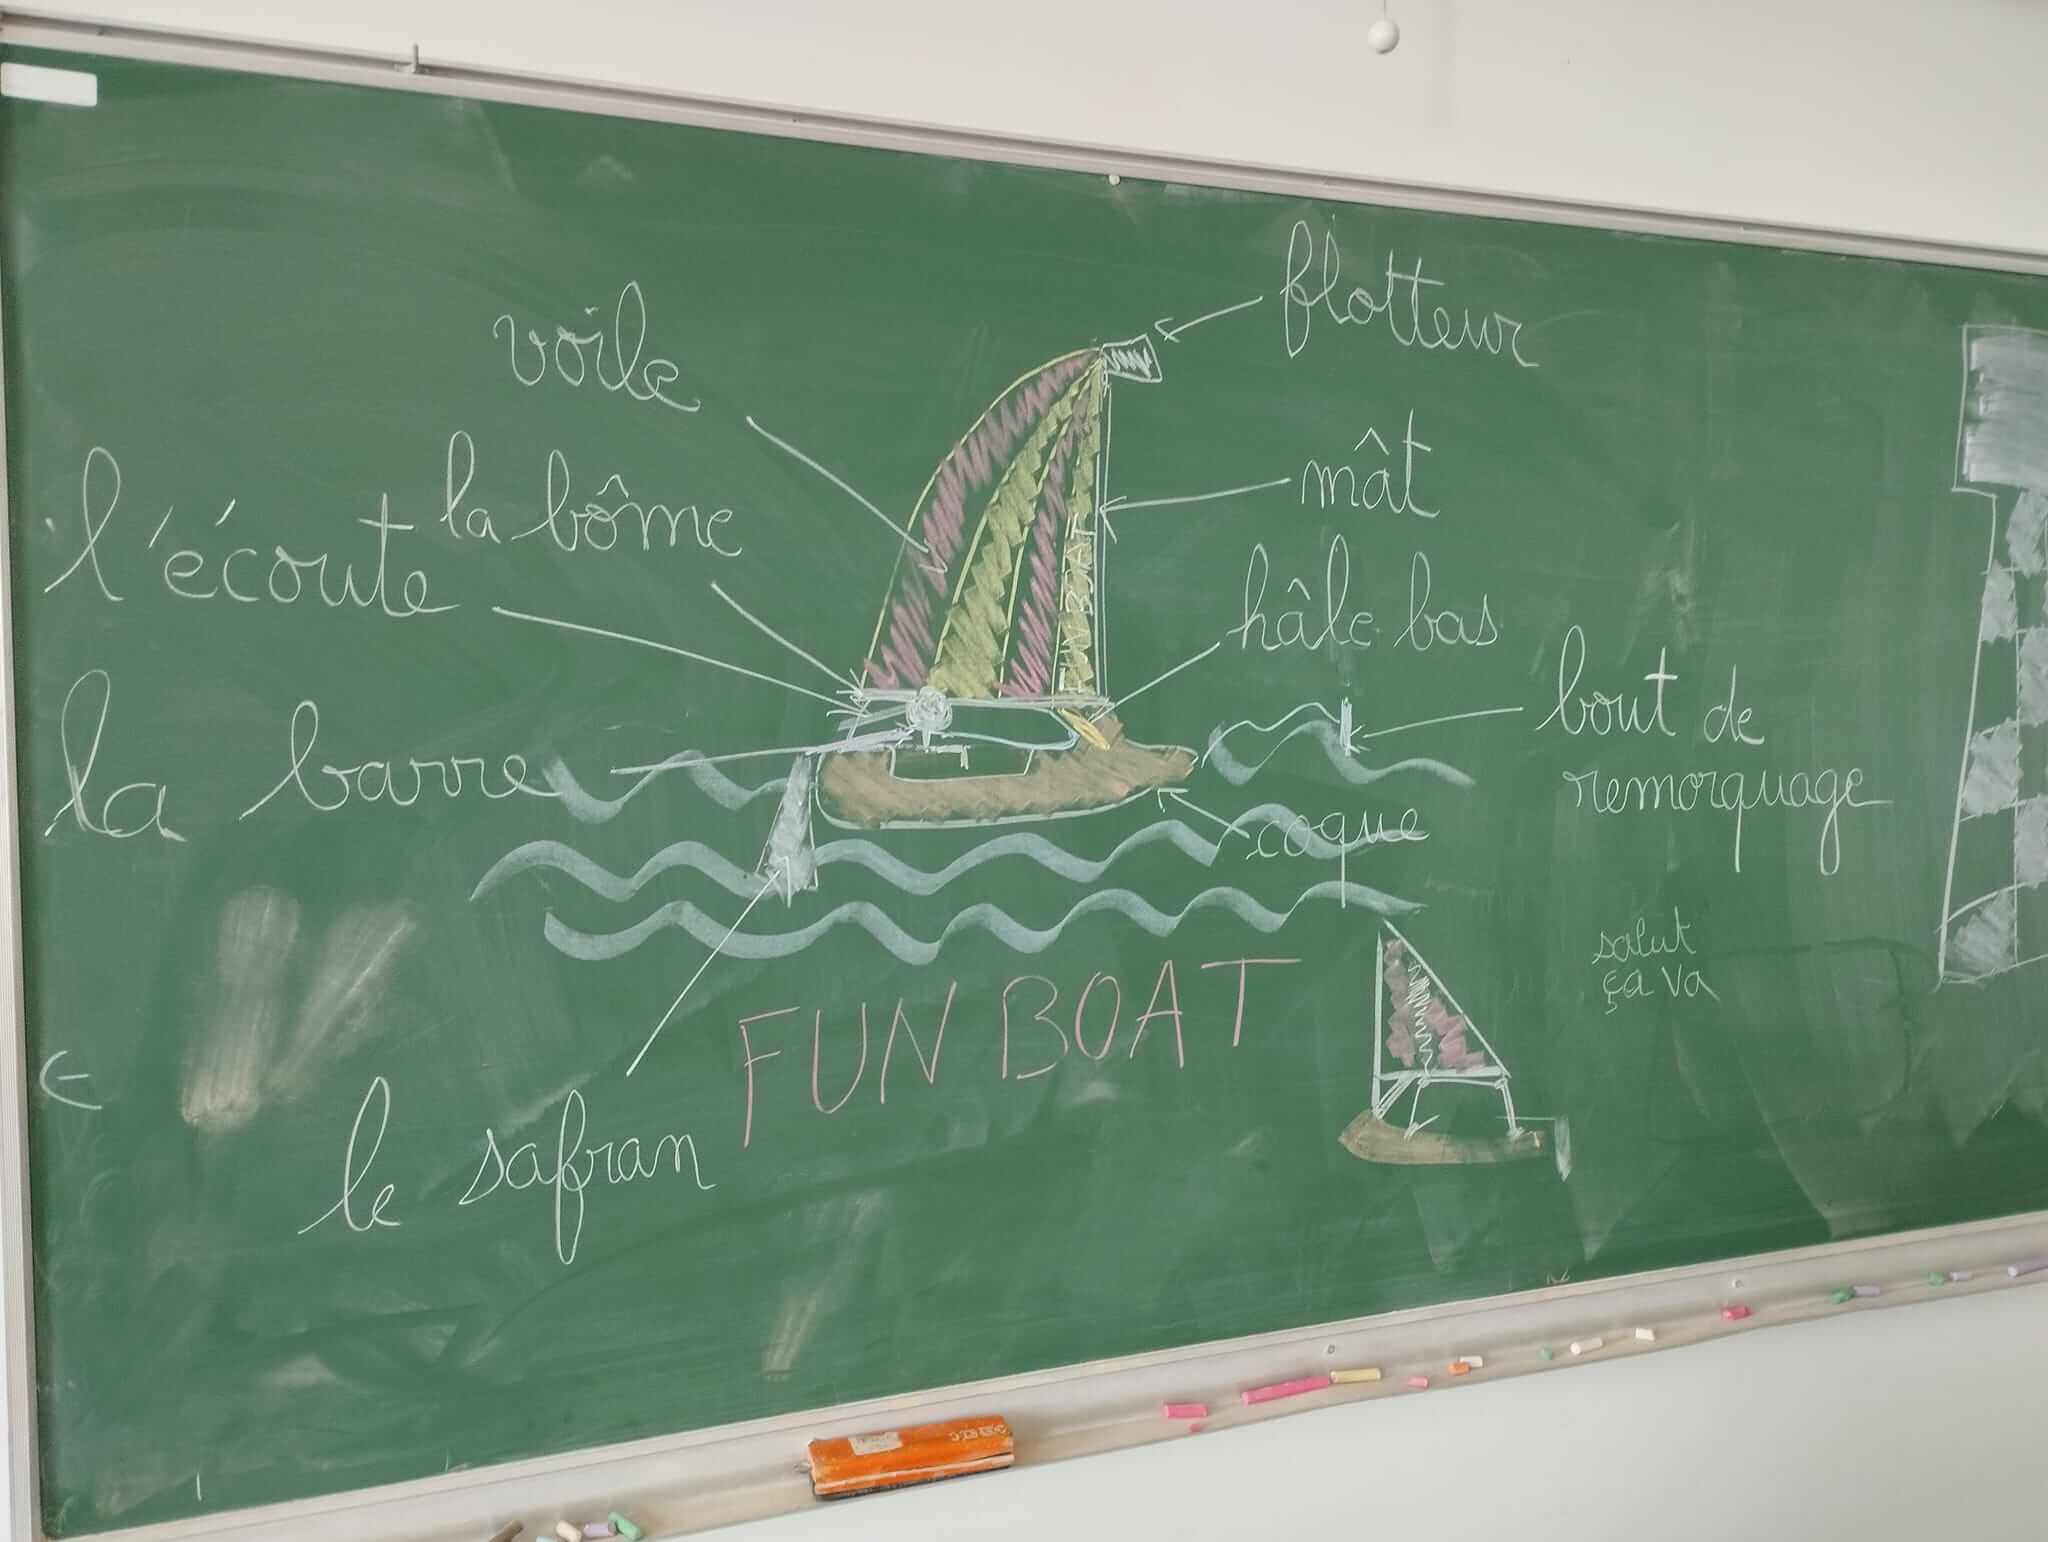 flotteur
voile
mât
la bôme
l'écoute
hâle bas
FUN BOAT
bout de
remorquage
la barre
coque
salut
ça va
FUN BOAT
le safran